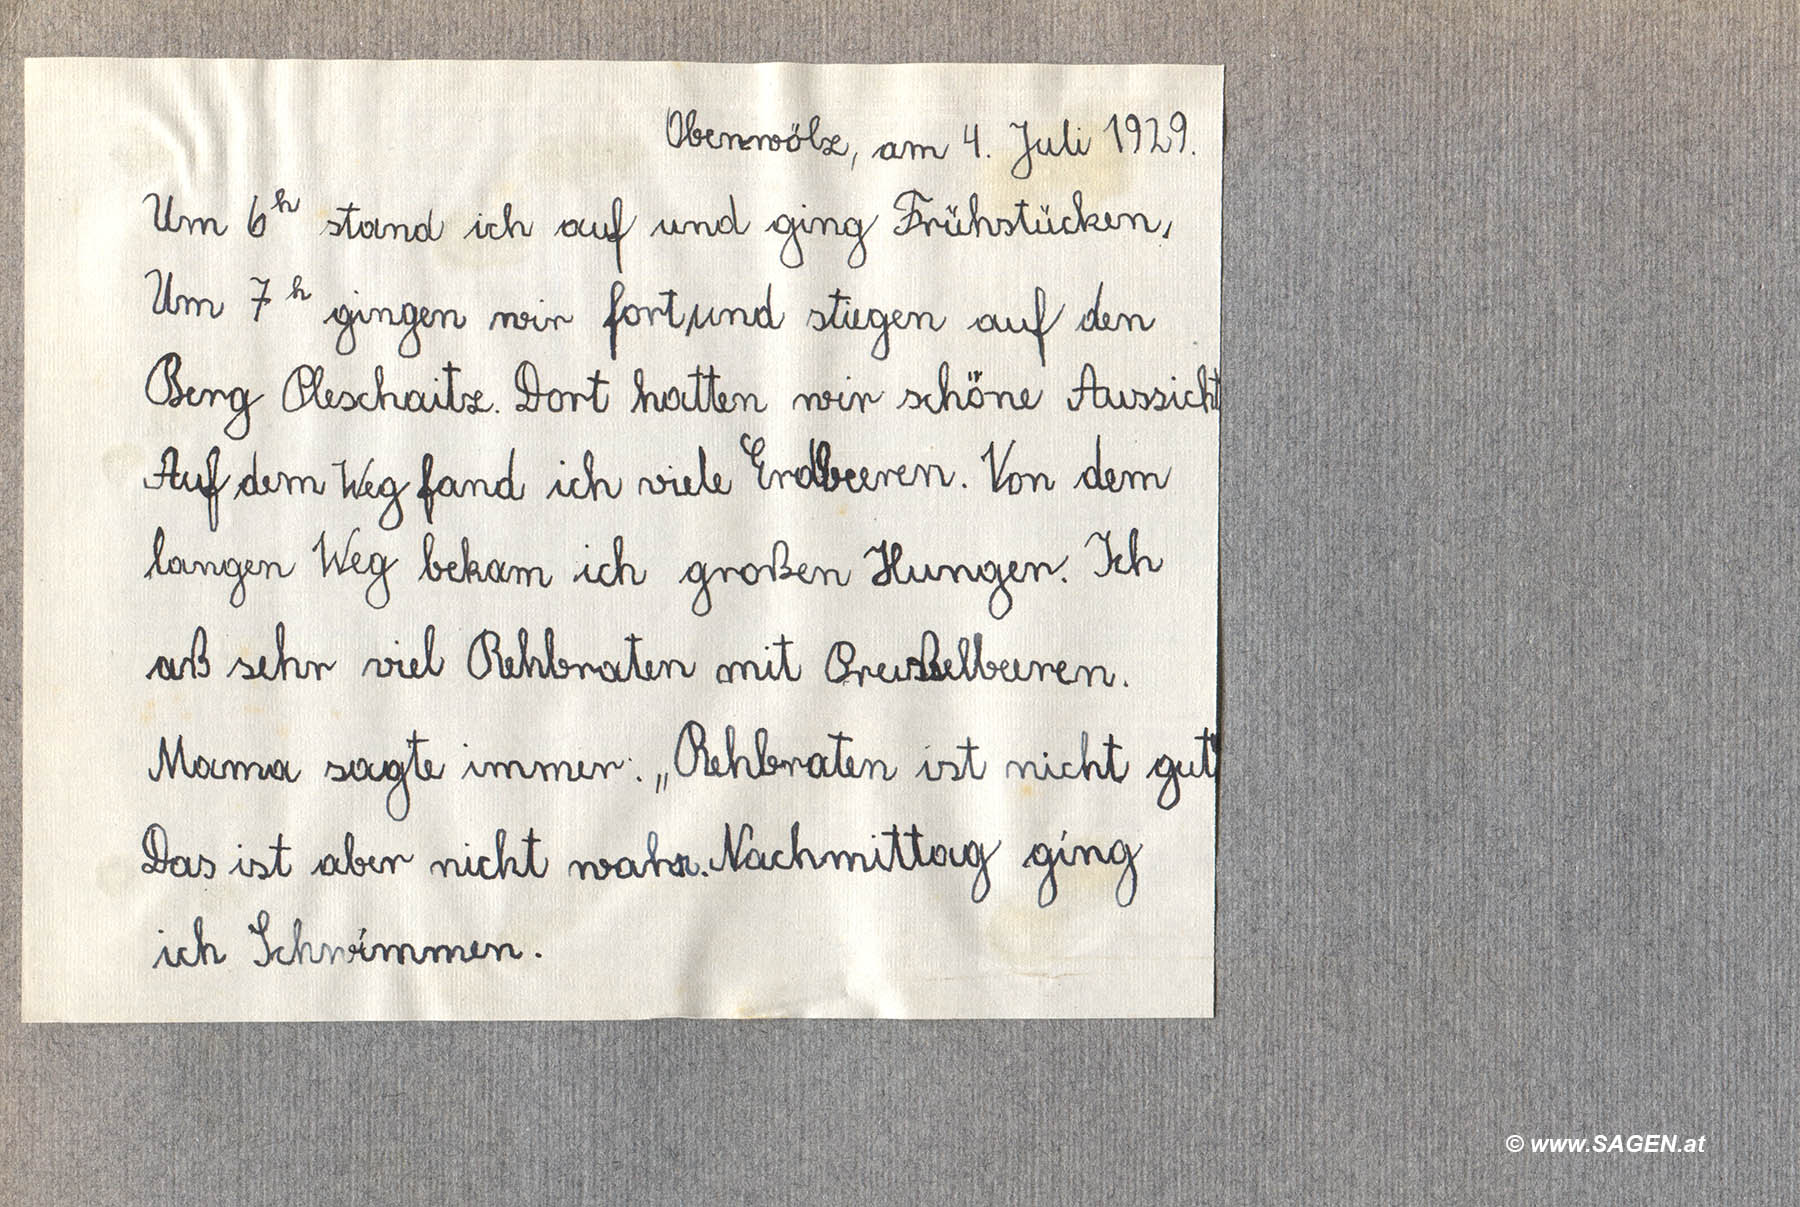 Oberwölz, am 4. Juli 1929.
Um 6h stand ich auf und ging Frühstücken,
Um 7h gingen wir fort, und stiegen auf den
Berg Pleschaitz. Dort hatten wir schöne Aussicht
Auf dem Weg fand ich viele Erdbeeren. Von dem
langen Weg bekam ich großen Hunger. Ich
aß sehr viel Rehbraten mit Preißelbeeren.
Mama sagte immer: „Rehbraten ist nicht gut"
Das ist aber nicht wahr. Nachmittag ging
ich Schwimmen.
© www.SAGEN.at